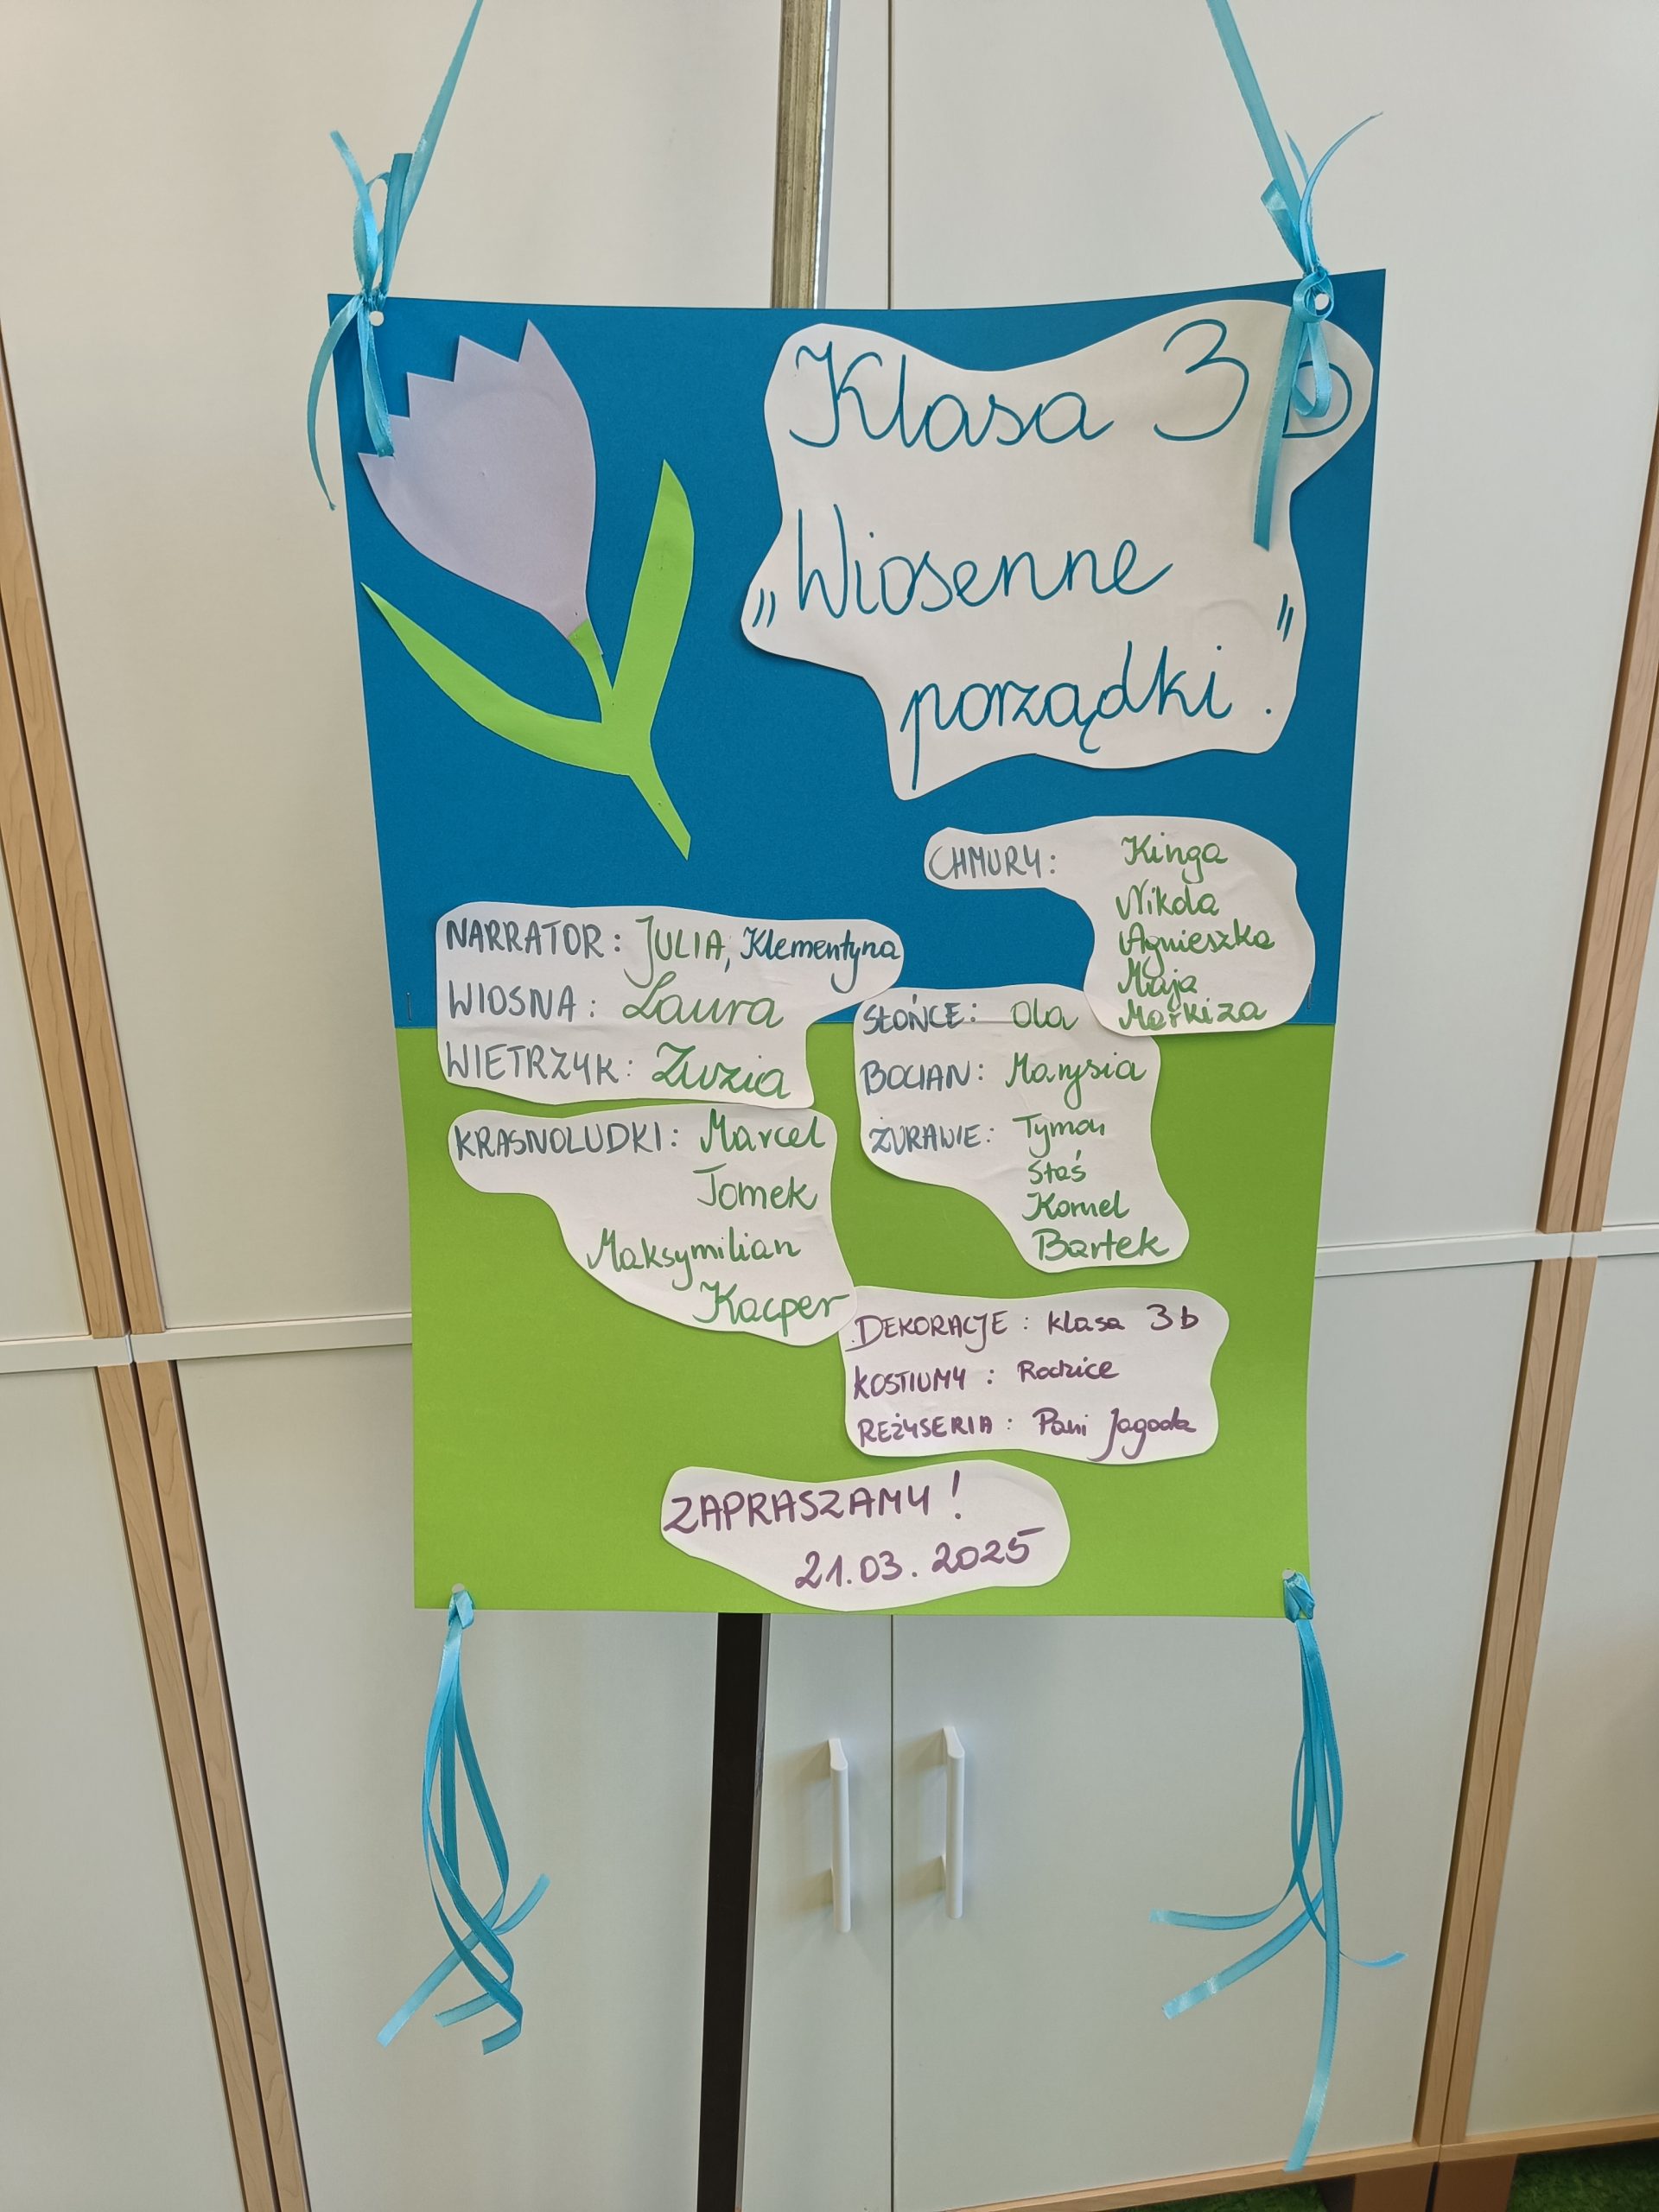 Klasa 3 b
„Wiosenne
porządki."
CHMURY: Kinga
Nikola
Agnieszka
Maja
Markiza
NARRATOR: JULIA, Klementyna
WIOSNA: Laura
WIETRZYK: Zuzia
SŁOŃCE: Ola
BOCIAN: Marysia
ŻURAWIE: Tymon
Staś
Kornel
Bartek
KRASNOLUDKI: Marcel
Tomek
Maksymilian
Kacper
DEKORACJE: klasa 3b
KOSTIUMY: Rodzice
REŻYSERIA: Pani Jagoda
ZAPRASZAMY!
21.03.2025